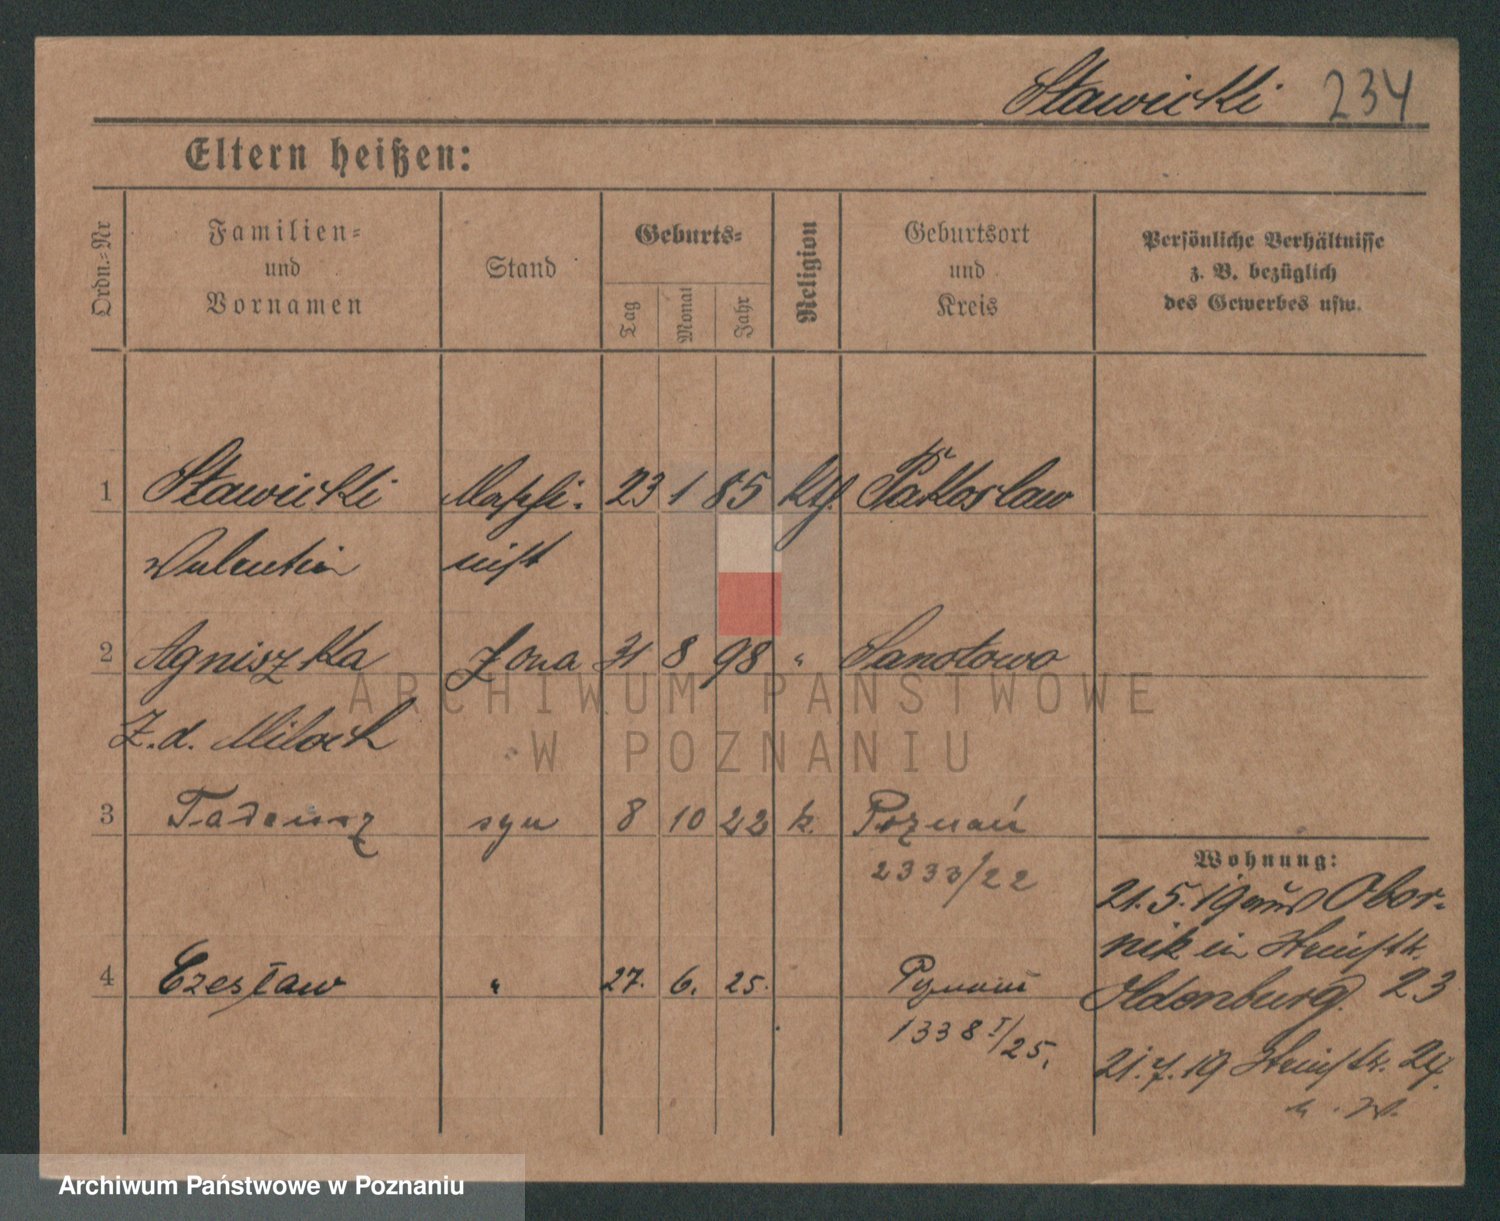 Sławicki 234
Eltern heißen:
Ordn.-Nr
Familien-
und
Vornamen
Stand
Geburts-
Tag
Monat
Jahr
Religion
Geburtsort
und
Kreis
Persönliche Verhältnisse
z. B. bezüglich
des Gewerbes usw.
1 Sławicki Maschi- 23 1 85 kth. Pakosław
Valentin nist
2 Agniszka Żona 31 8 98 " Sanotowo
Z. d. Miloch
3 Tadeusz syn 8 10 22 k. Poznań
2333/22
4 Czesław " 27. 6. 25. Poznań
1338 I/25.
Wohnung:
21.5.19 aus Obor-
nik in
Oldenburg. 23
21.7.19 24.
ARCHIWUM PAŃSTWOWE
W POZNANIU
Archiwum Państwowe w Poznaniu